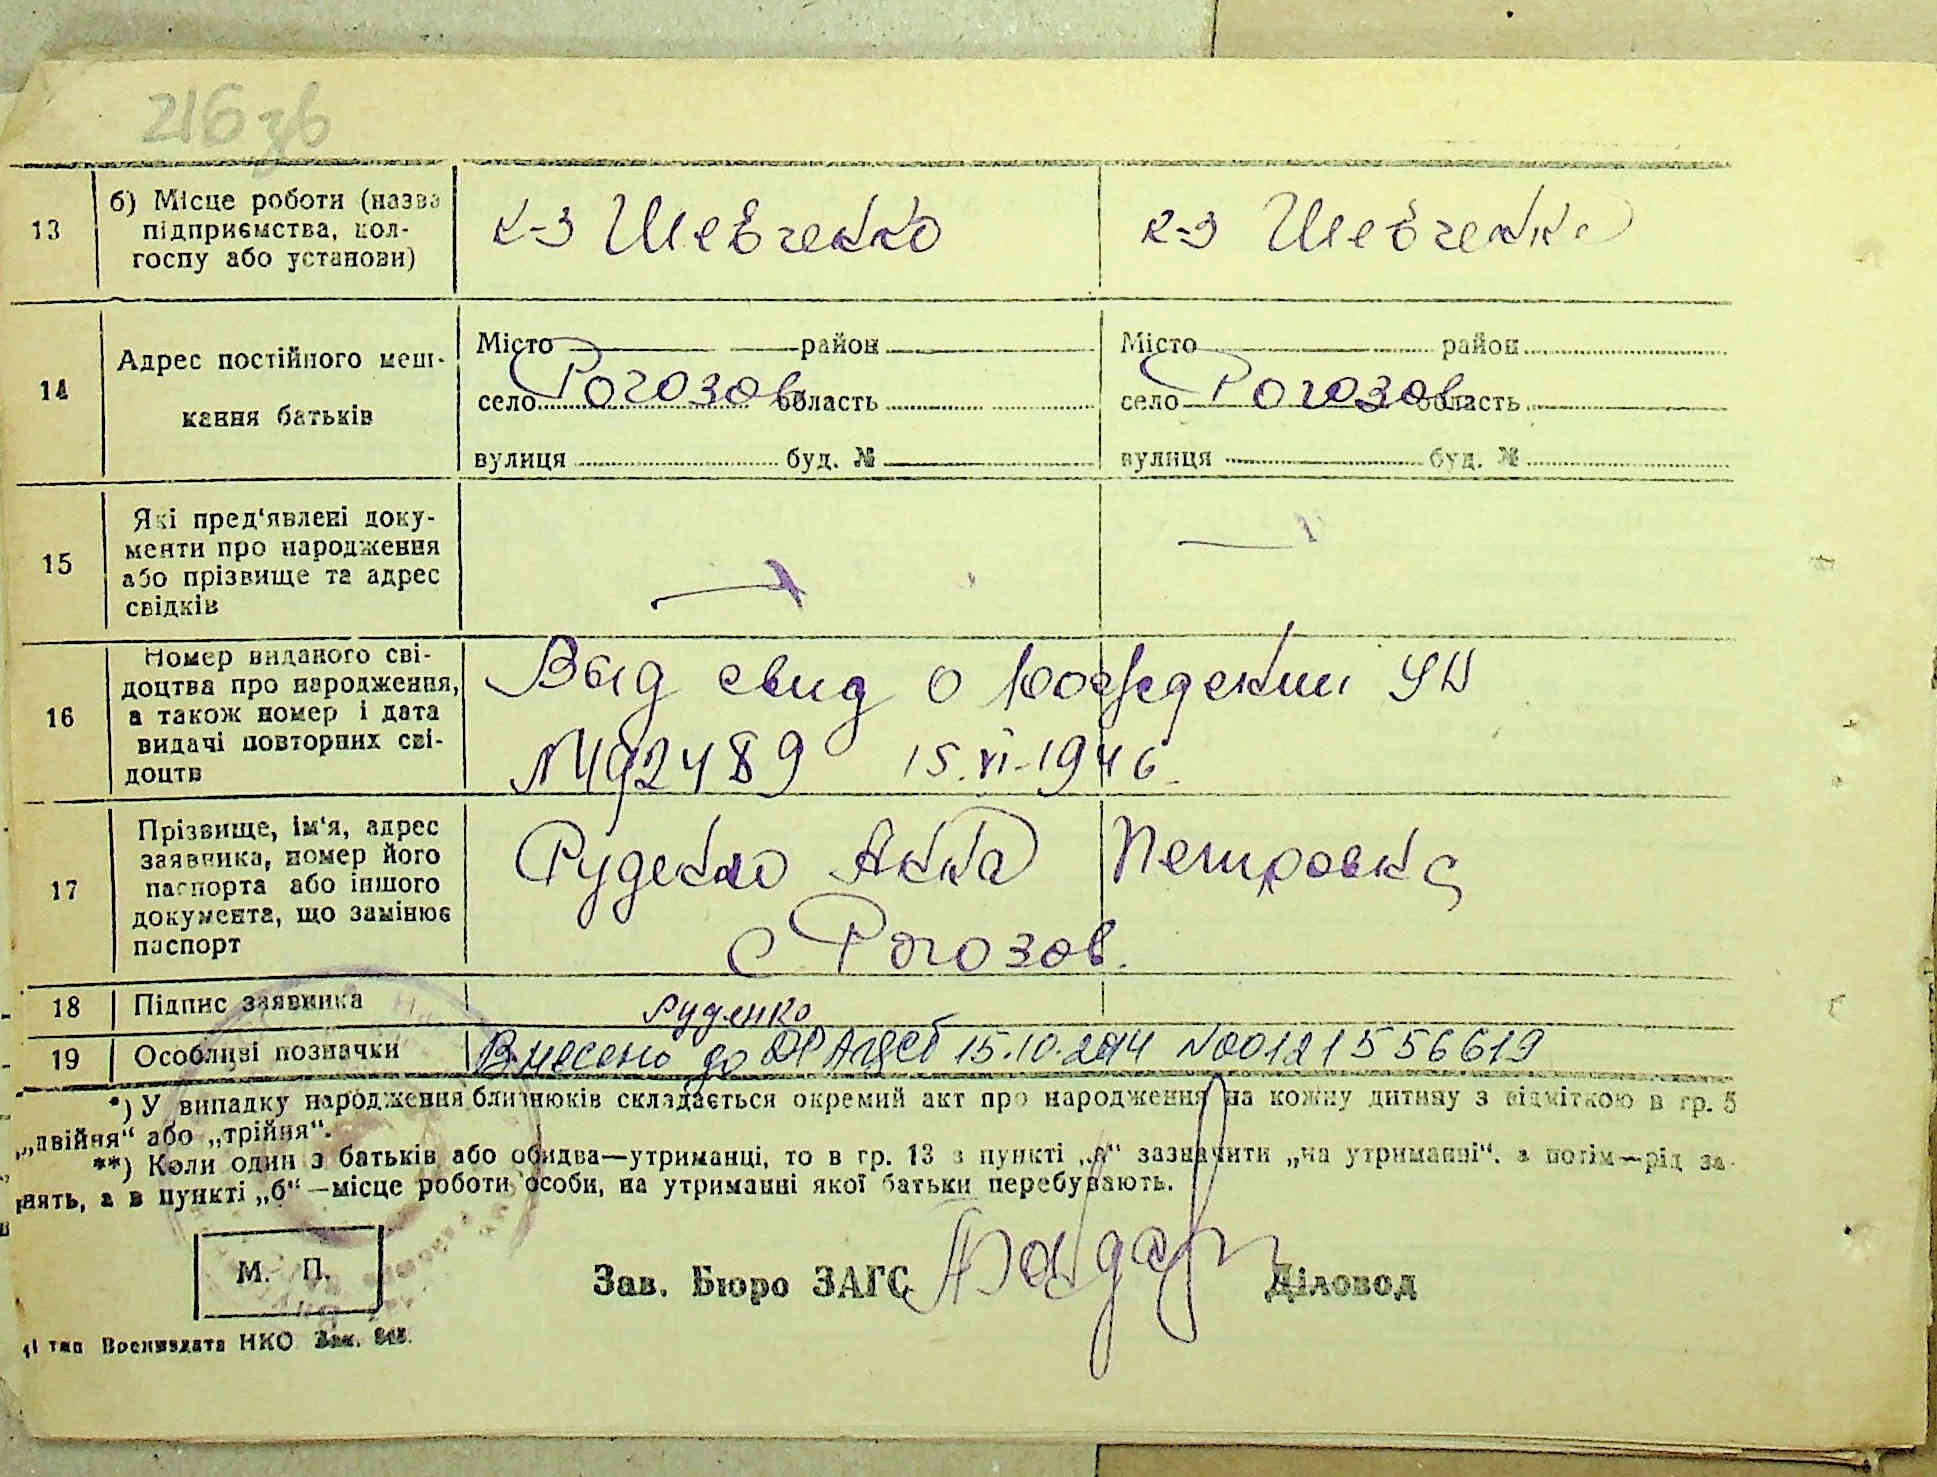 216 зв
13
б) Місце роботи (назва
підприємства, кол-
госпу або установи)
к-з Шевченко
к-з Шевченко
14
Адрес постійного меш-
кання батьків
Місто район
село Рогозов область
вулиця буд. №
Місто район
село Рогозов область
вулиця буд. №
15
Які пред'явлені доку-
менти про народження
або прізвище та адрес
свідків
16
Номер виданого сві-
доцтва про народження,
а також номер і дата
видачі повторних сві-
доцтв
Выд свид о рождении
№ 492489 15.VI-1946
17
Прізвище, ім'я, адрес
заявника, номер його
паспорта або іншого
документа, що замінює
паспорт
Руденко Анна Петровна
с Рогозов.
18
Підпис заявника
Руденко
19
Особливі позначки
Внесено до 15.10.2014 №00121556619
*) У випадку народження близнюків складається окремий акт про народження на кожну дитину з відміткою в гр. 5
„двійня" або „трійня".
**) Коли один з батьків або обидва—утриманці, то в гр. 13 в пункті „а" зазначити „на утриманні", а потім—рід за-
нять, а в пункті „б"—місце роботи особи, на утриманні якої батьки перебувають.
М. П.
Зав. Бюро ЗАГС
Діловод
тип Воениздата НКО Зак.